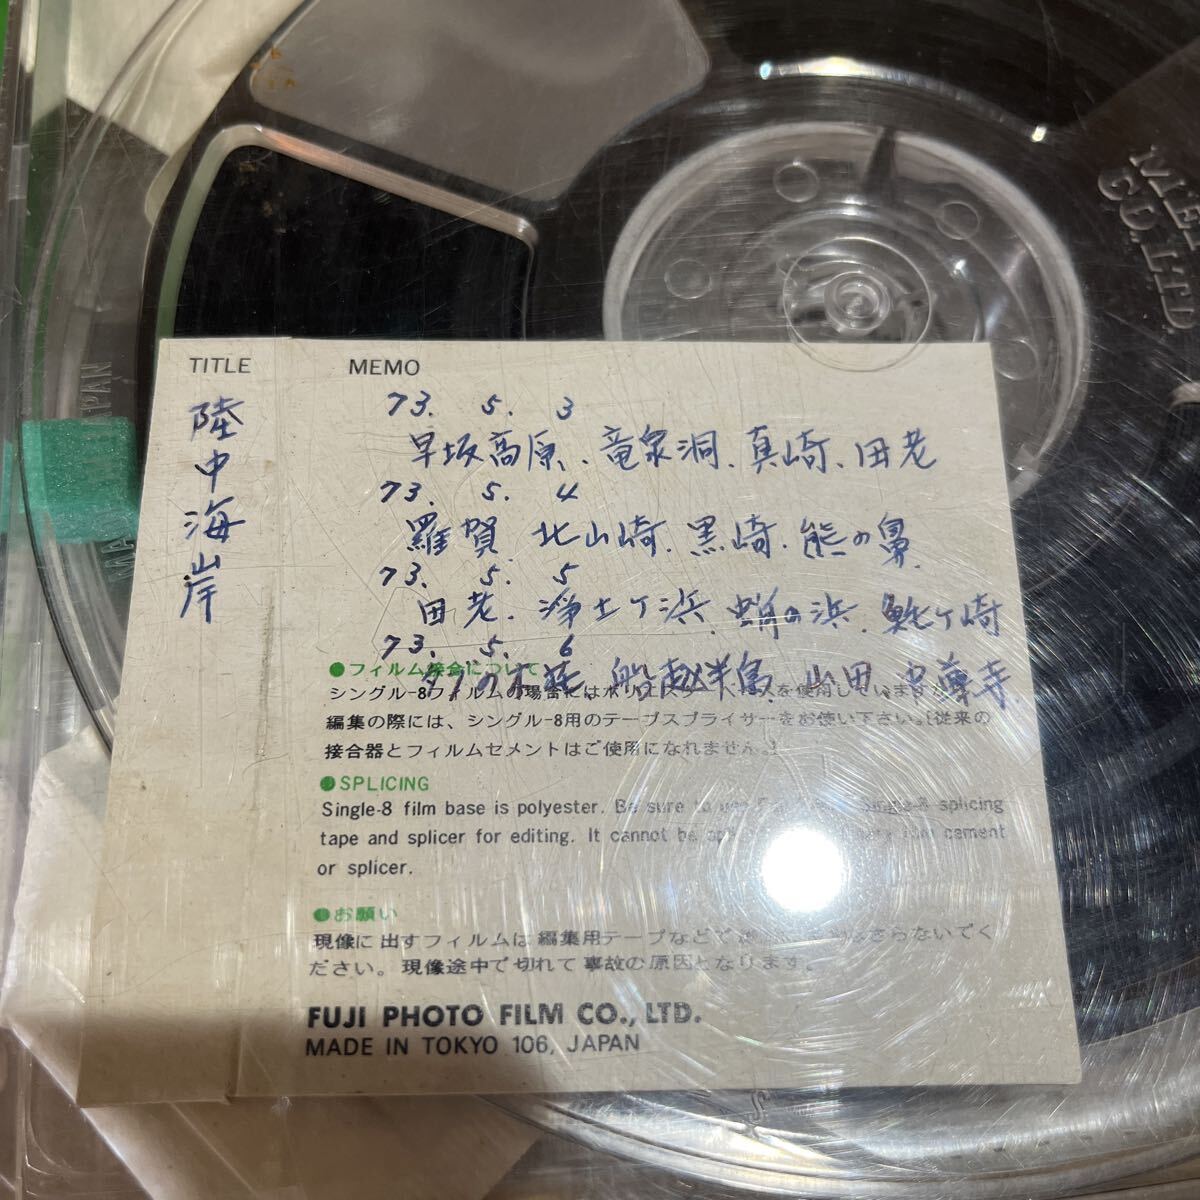 TITLE
陸中海岸
MEMO
73. 5. 3
早坂高原、竜泉洞、真崎、田老
73. 5. 4
羅賀 北山崎、黒崎、熊の鼻、
73. 5. 5
田老、浄土ヶ浜、蛸の浜、魹ヶ崎
73. 5. 6
船越半島、山田、中尊寺
●フィルム接合について
シングル-8フィルムの場合にはポリエステルベースを使用しています
編集の際には、シングル-8用のテープスプライサーをお使い下さい。(従来の
接合器とフィルムセメントはご使用になれません。)
●SPLICING
Single-8 film base is polyester. Be sure to use Single-8 splicing
tape and splicer for editing. It cannot be cement
or splicer.
●お願い
現像に出すフィルムは編集用テープなどで さらないでく
ださい。現像途中で切れて事故の原因となります。
FUJI PHOTO FILM CO., LTD.
MADE IN TOKYO 106, JAPAN
LTD.
JAPAN